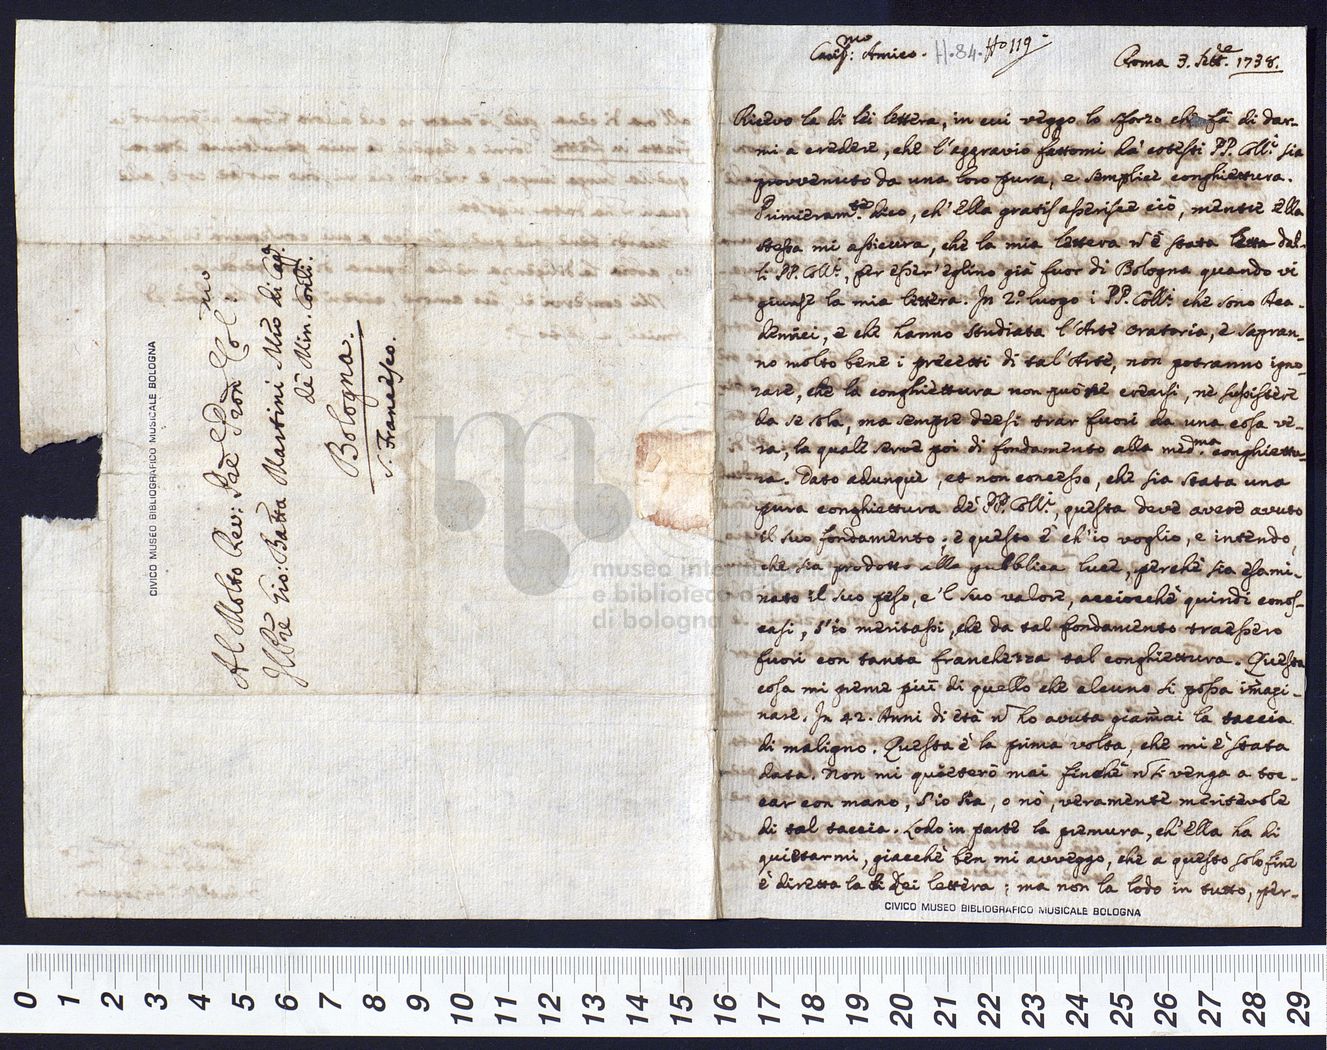 Cariss:mo Amico. H.84. Ho 119
Roma 3. Sett.e 1738.
Ricevo la di lei lettera, in cui veggo lo sforzo che fà di dar-
mi a credere, che l'aggravio fattomi dà cotesti PP. Coll.i sia
provvenuto da una loro pura, e semplice conghiettura.
Primieram.te dico, ch'Ella gratis asserisce ciò, mentre Ella
stessa mi assicura, che la mia lettera ñ è stata letta dal-
li PP. Coll.i, per esser'eglino già fuor di Bologna quando vi
giunse la mia lettera. In 2.o luogo i PP. Coll.i che sono Aca-
demici, e che hanno studiata l'Arte oratoria, e sapran-
no molto bene i precetti di tal'Arte, non potranno igno-
rare, che la conghiettura non puote crearsi, nè sussistere
da se sola, ma sempre deesi trar fuori da una cosa ve-
ra, la quale serve poi di fondamento alla med.ma conghiettu-
ra. Dato adunque, et non concesso, che sia stata una
pura conghiettura dè PP. Coll.i, questa deve avere avuto
il suo fondamento; e questo è ch'io voglio, e intendo,
che sia prodotto alla pubblica luce, perchè sia esami-
nato il suo peso, e 'l suo valore, acciocchè quindi conos-
casi, s'io meritassi, che da tal fondamento traessero
fuori con tanta franchezza tal conghiettura. Questa
cosa mi preme più di quello che alcuno si possa im̃agi-
nare. In 42. Anni di età ñ ho avuta giam̃ai la taccia
di maligno. Questa è la prima volta, che mi è stata
data. Non mi quieterò mai finchè ñ si venga a toc-
car con mano, s'io sia, o nò, veramente meritevole
di tal taccia. Lodo in parte la premura, ch'Ella ha di
quietarmi, giacchè ben mi avveggo, che a questo solo fine
è diretta la di Lei lettera; ma non la lodo in tutto, per-
CIVICO MUSEO BIBLIOGRAFICO MUSICALE BOLOGNA
Al Molto Rev: Pãe Pron Col:mo
Il Pre Gio: Batta Martini Mro di Capp.a
dè Min. Conti.
Bologna.
S. Francesco.
CIVICO MUSEO BIBLIOGRAFICO MUSICALE BOLOGNA
museo internazionale
e biblioteca d
di bologna
0 1 2 3 4 5 6 7 8 9 10 11 12 13 14 15 16 17 18 19 20 21 22 23 24 25 26 27 28 29